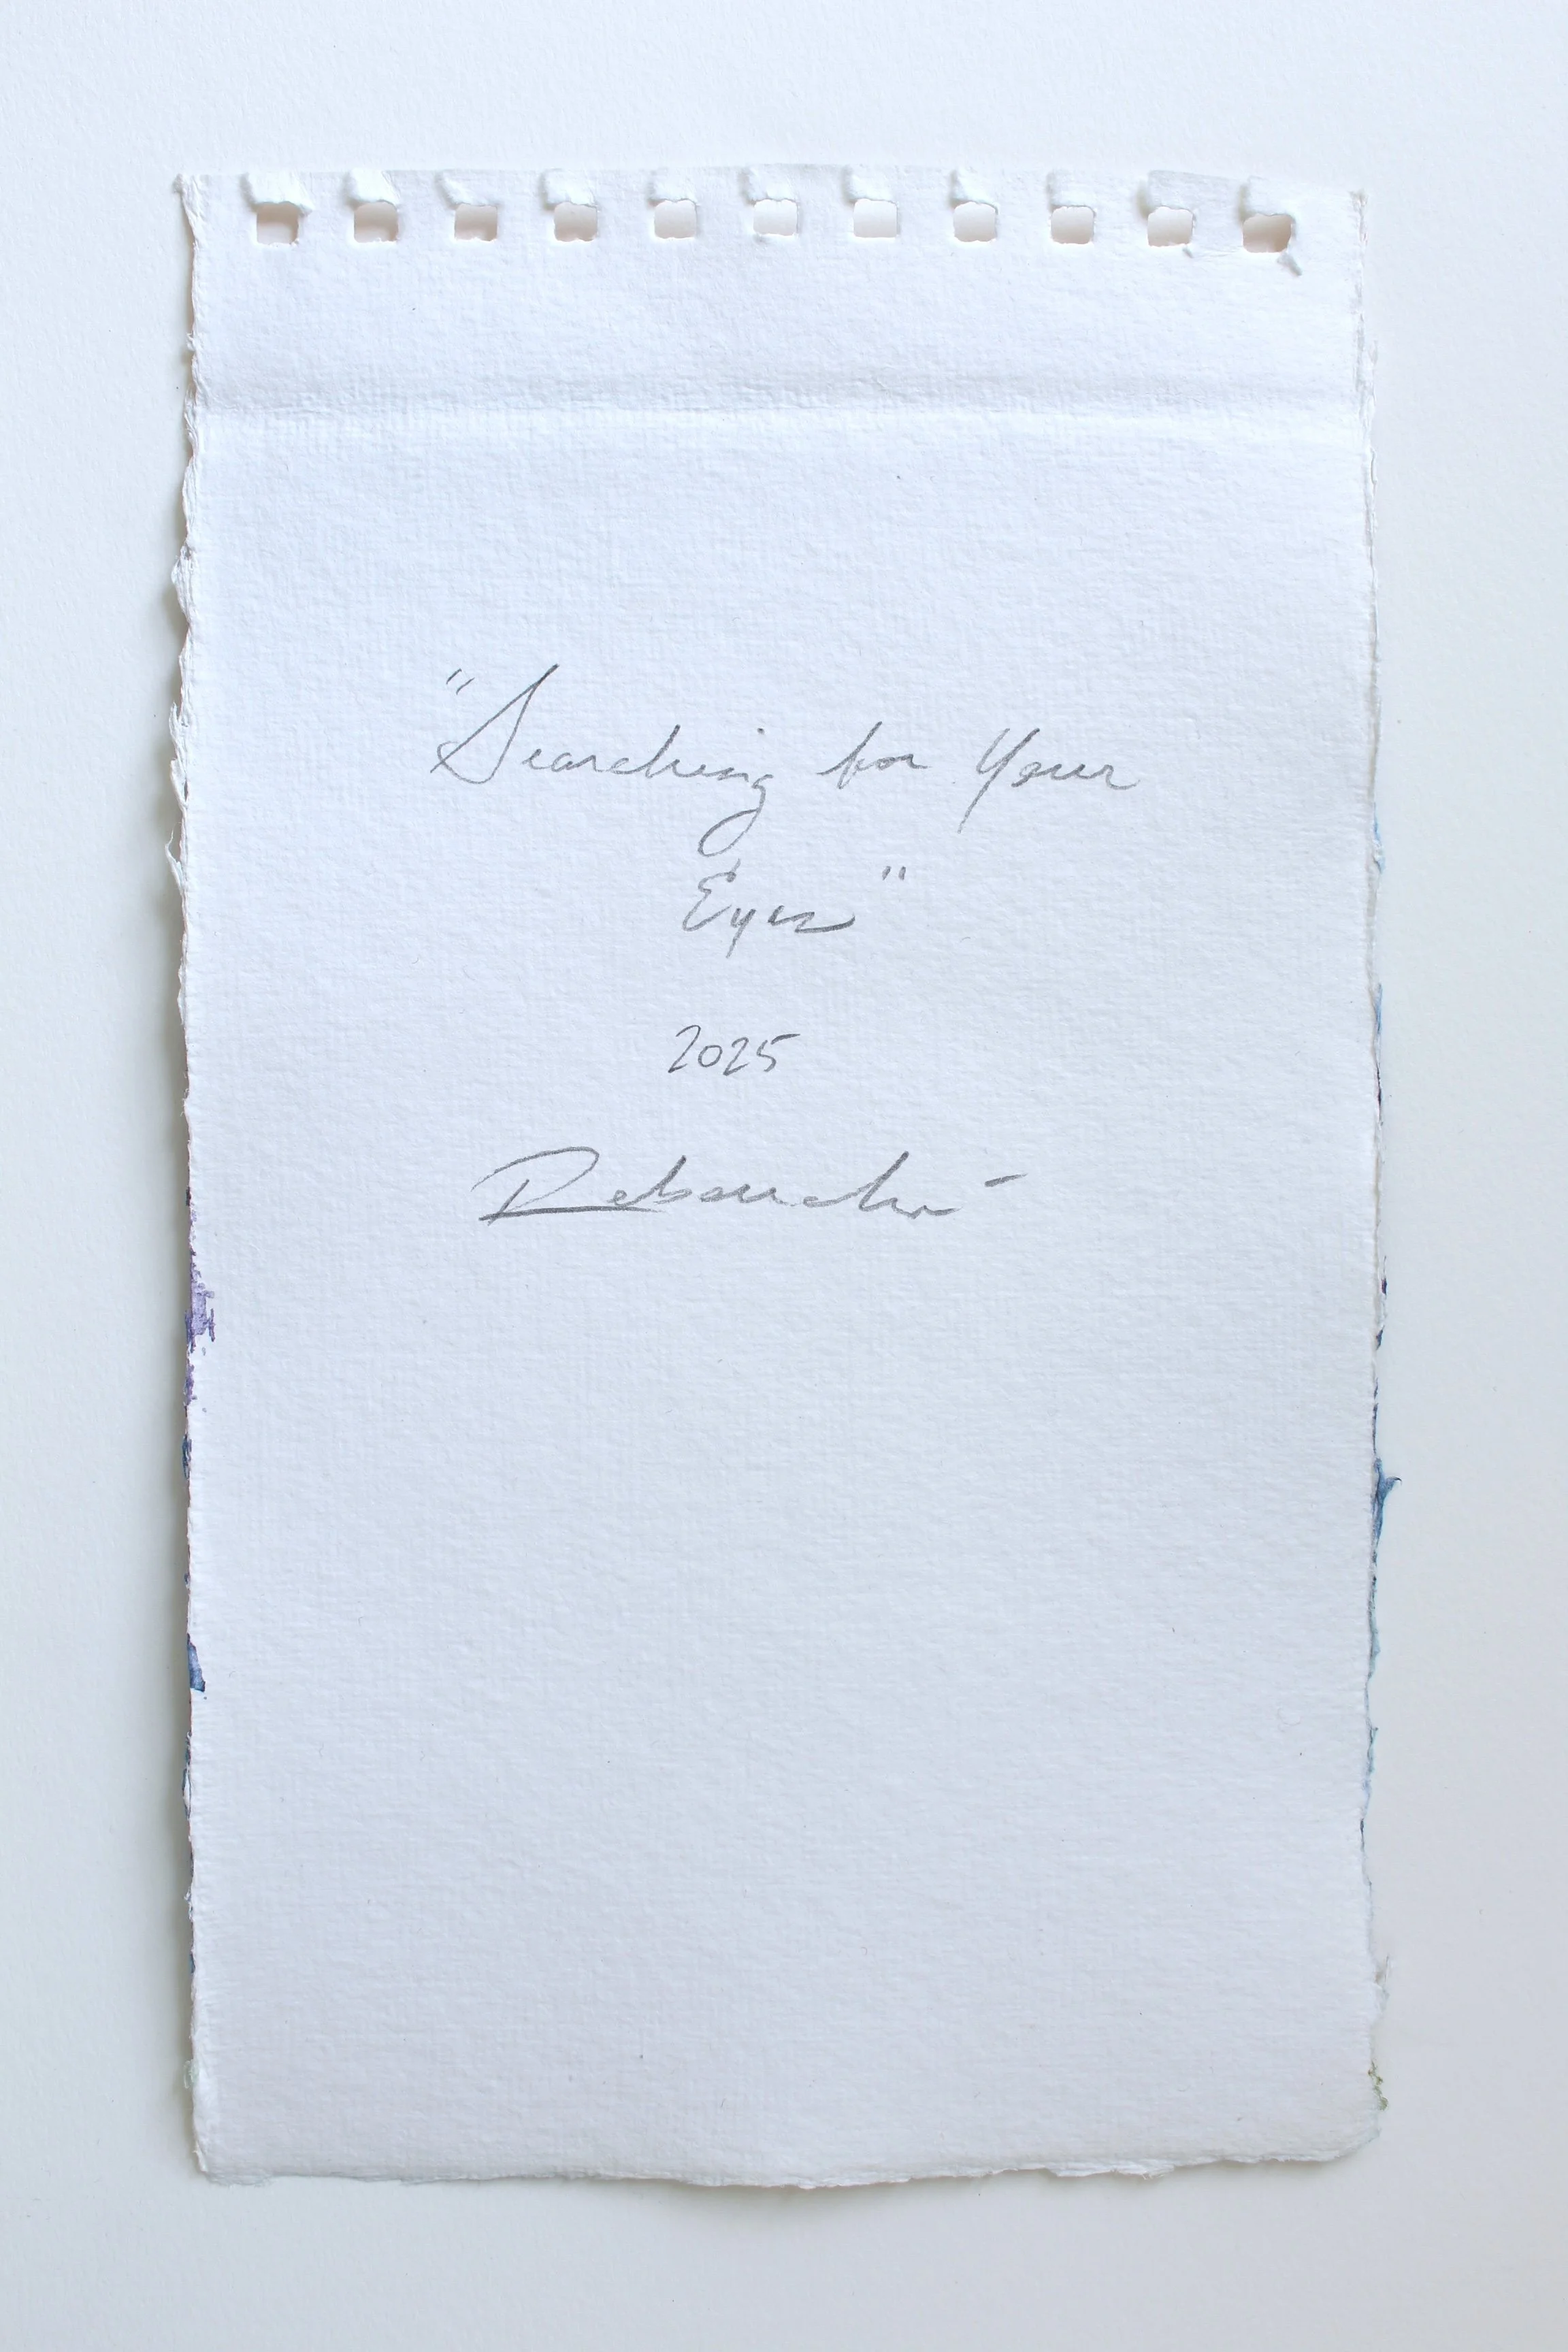 "Searching for Your
Eyes"
2025